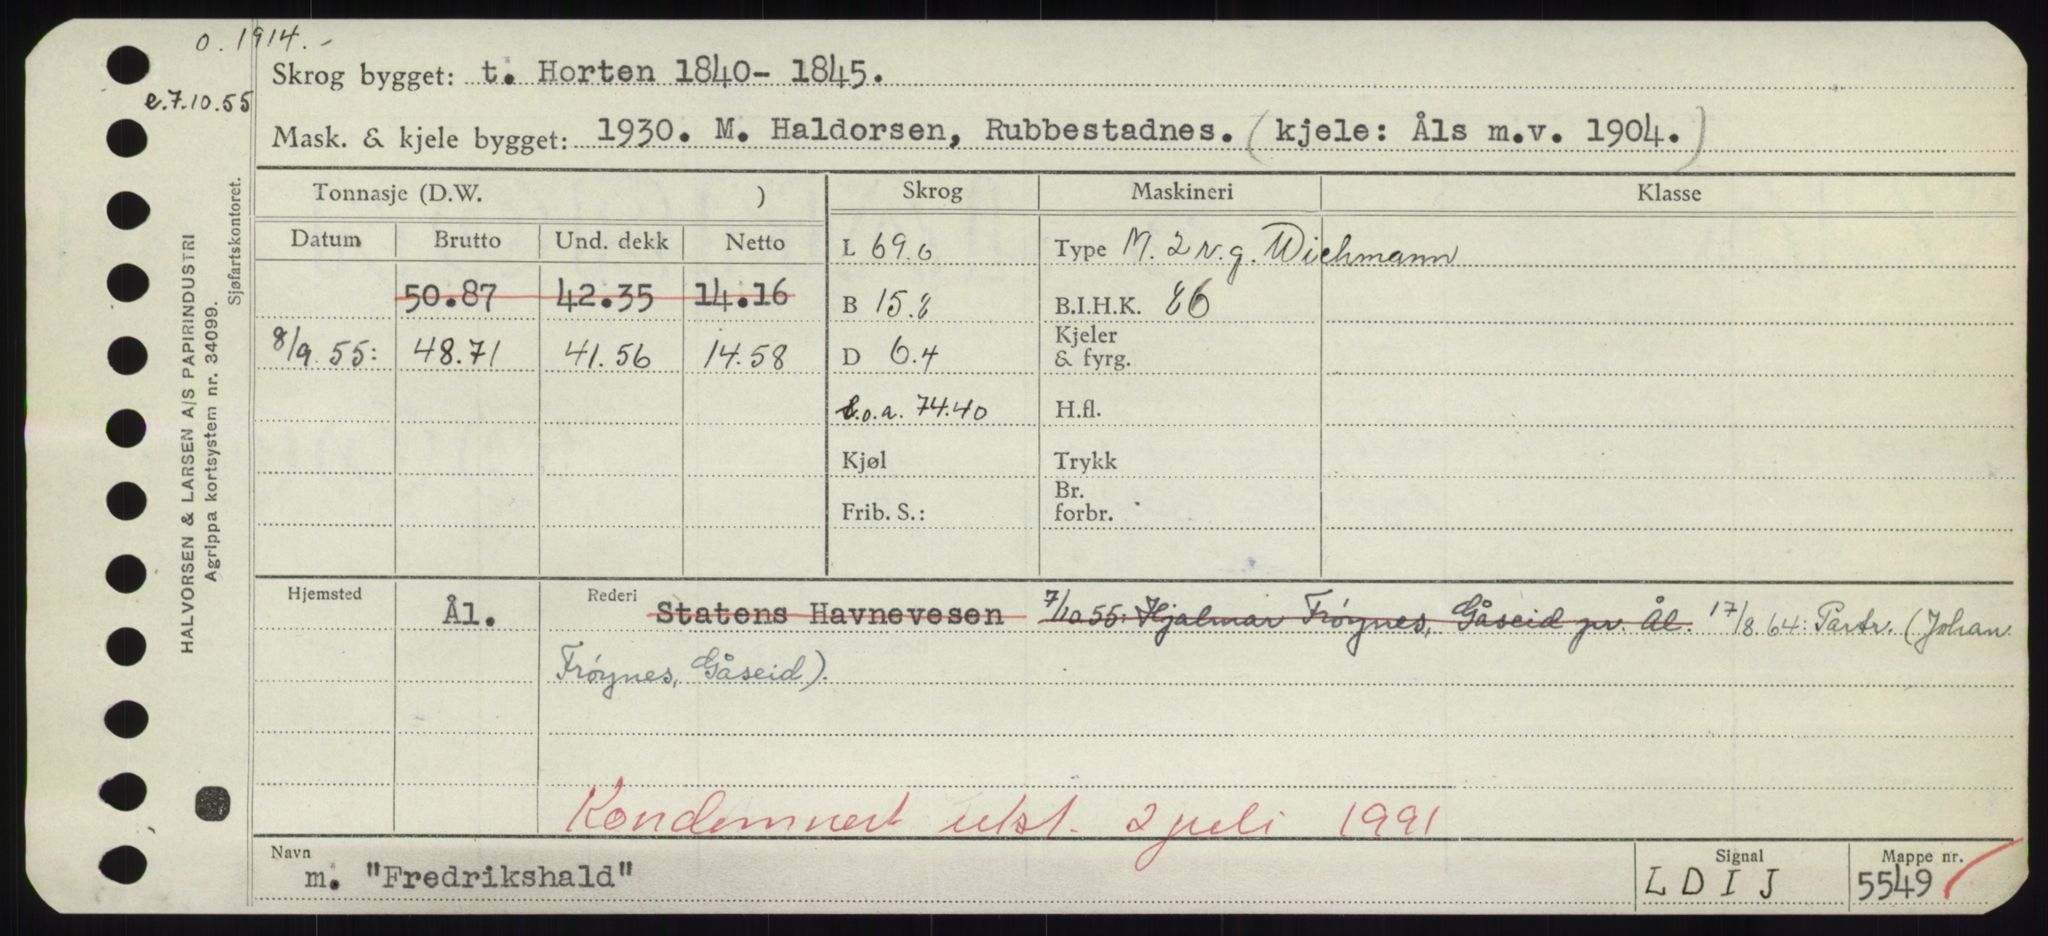 o. 1914.-
Skrog bygget: t. Horten 1840- 1845.
e.7.10.55
Mask. & kjele bygget: 1930. M. Haldorsen, Rubbestadnes. (kjele: Åls m.v. 1904.)
Tonnasje (D.W. )
Skrog
Maskineri
Klasse
Datum Brutto Und. dekk Netto
L 69.0
Type M. 2 v.g. Wichmann
50.87 42.35 14.16
B 15.8
B.I.H.K. 86
8/9.55: 48.71 41.56 14.58
D 6.4
Kjeler
& fyrg.
l.o.a. 74.40
H.fl.
Kjøl
Trykk
Frib. S.:
Br.
forbr.
HALVORSEN & LARSEN A/S PAPIRINDUSTRI
Agrippa kortsystem nr. 34099.
Sjøfartskontoret.
Hjemsted Ål.
Rederi Statens Havnevesen 7/10 55: Hjalmar Frøynes, Gåseid pr. Ål. 17/8.64: Partr. (Johan
Frøynes, Gåseid).
Kondemnert utst. 2 juli 1991
Navn
m. "Fredrikshald"
Signal
LDIJ
Mappe nr.
5549